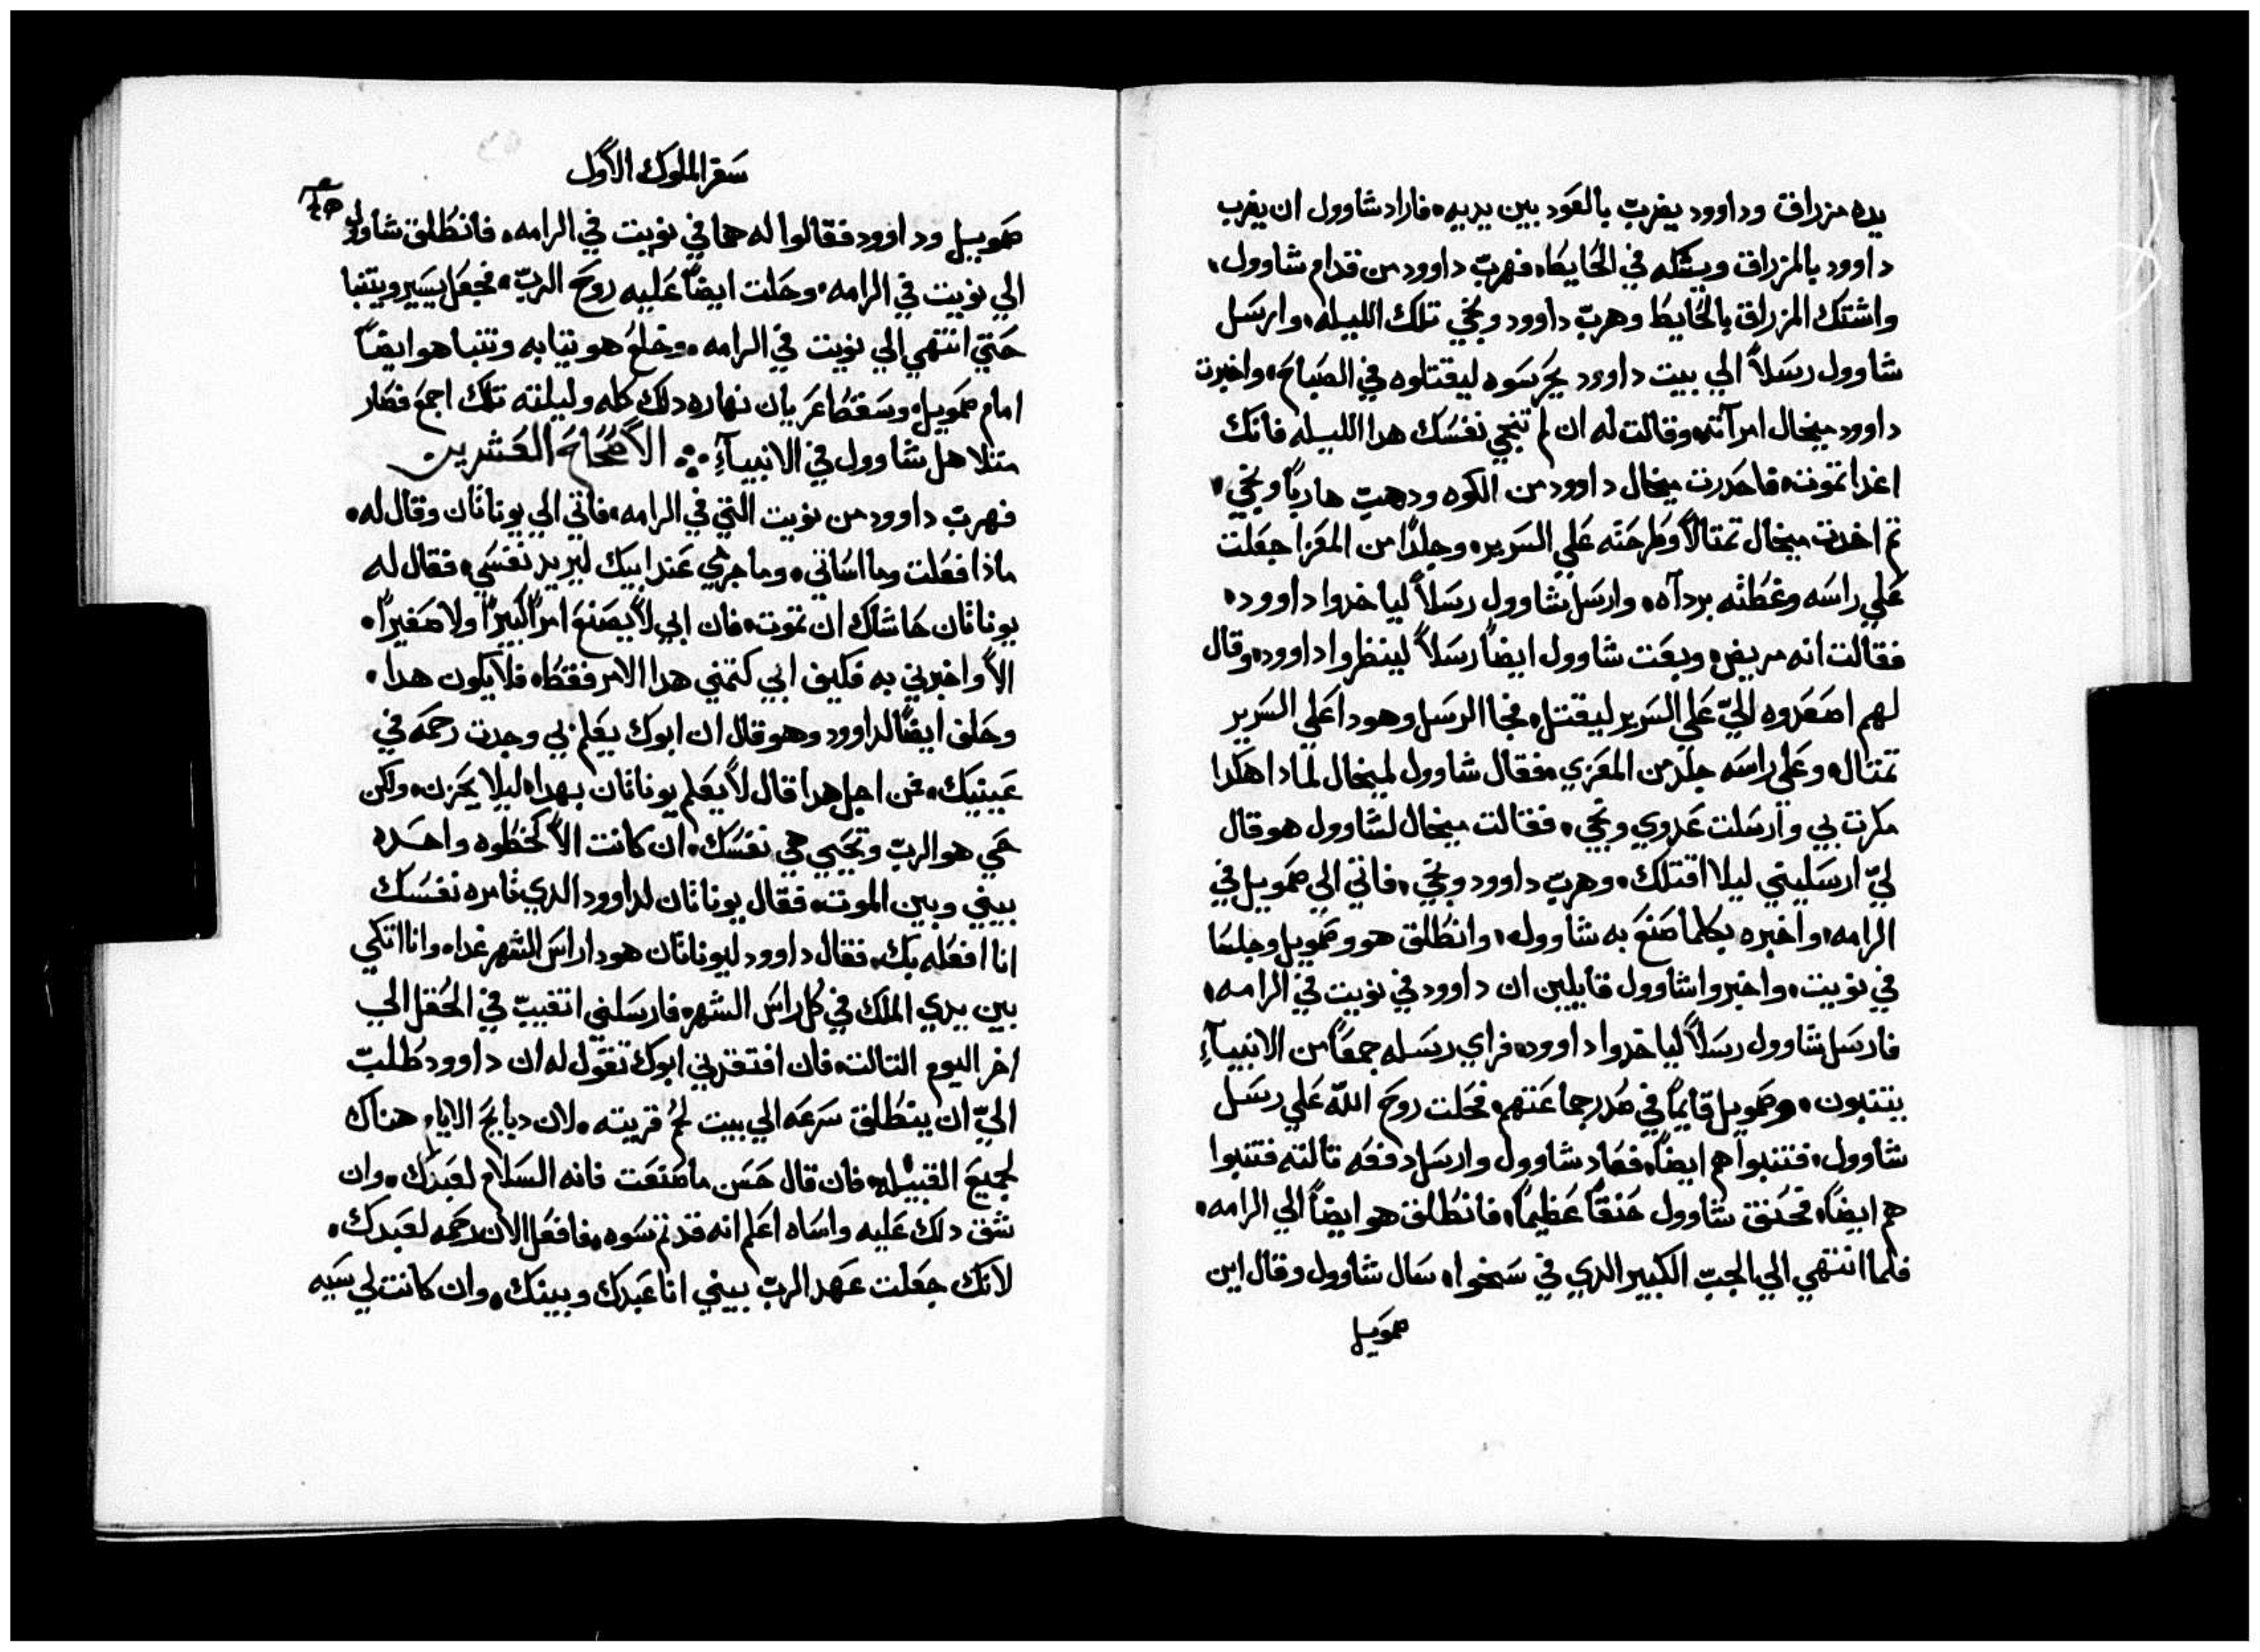 يده مزراق وداوود يضرب بالعود بين يديه فاراد شاوول ان يضرب
داوود بالمزراق ويشكه في الحايط فهرب داوود من قدام شاوول
واشتك المزراق بالحايط وهرب داوود ونجي تلك الليله وارسل
شاوول رسلاً الي بيت داوود يحرسوه ليقتلوه في الصباح واخبرت
داوود ميخال امرآته وقالت له ان لم تنجي نفسك هدا الليله فانك
اغدا تموت فاحدرت ميخال داوود من الكوه ودهب هارباً ونجي
تم اخدت ميخال تمتالاً وطرحته علي السرير وجلداً من المعزا جعلت
علي راسه وغطته بردآه وارسل شاوول رسلاً لياخدوا داوود
فقالت انه مريض وبعت شاوول ايضاً رسلاً لينظروا داوود وقال
لهم اصعدوه اليّ علي السرير ليقتل فجا الرسل وهودا علي السرير
تمتال وعلي راسه جلد من المعزي فقال شاوول لميخال لمادا هكدا
مكرت بي وارسلت عدوي ونجي فقالت ميخال لشاوول هو قال
ليّ ارسليني ليلا اقتلك وهرب داوود ونجي فاتي الي صمويل في
الرامه واخبره بكلما صنع به شاوول وانطلق هو وصمويل وجلسا
في نويت واخبروا شاوول قايلين ان داوود في نويت في الرامه
فارسل شاوول رسلاً لياخدوا داوود فراي رسله جمعاً من الانبيآءِ
يتنبون وصمويل قايماً في صدر جماعتهم فحلت روح اللّه علي رسل
شاوول فتنبوا هم ايضاً فعاد شاوول وارسل دفعه تالته فتنبوا
هم ايضاً فحنق شاوول حنقاً عظيماً فانطلق هو ايضاً الي الرامه
فلما انتهي الي الجب الكبير الدي في سخوا سال شاوول وقال اين
صمويل
سفر الملوك الاول
صمويل وداوود فقالوا له هما في نويت في الرامه فانطلق شاوول
الي نويت في الرامه وحلت ايضاً عليه روح الربّ فجعل يسير ويتنبا
حتي انتهي الي نويت في الرامه وخلع هو تيابه وتنبا هو ايضاً
امام صمويل وسقط عريان نهاره دلك كله وليلته تلك اجمع فصار
متلا هل شاوول في الانبيآءِ الاصحاح العشرين
فهرب داوود من نويت التي في الرامه فاتي الي يوناتان وقال له
ماذا فعلت وما اساتي وما جرمي عند ابيك ليريد نفسي فقال له
يوناتان حاشاك ان تموت فان ابي لا يصنع امراً كبيراً ولا صغيراً
الا واخبرني به فكيف ابي كتمني هدا الامر فقط فلا يكون هدا
وحلف ايضاً لداوود وهو قال ان ابوك يعلم بي وجدت رحمه في
عينيك فمن اجل هدا قال لا يعلم يوناتان بهدا ليلا يحزن ولكن
حي هو الرب وتحيي هي نفسك ان كانت الا كخطوه واحده
بيني وبين الموت فقال يوناتان لداوود الدي تامره نفسك
انا افعله بك فقال داوود ليوناتان هودا راس الشهر غدا وانا اتكي
بين يدي الملك في كل راس الشهر فارسلني اتغيب في الحقل الي
اخر اليوم التالت فان افتقدني ابوك تقول له ان داوود طلب
اليّ ان ينطلق سرعه الي بيت لحم قريته لان دبايح الايام هناك
لجميع القبيله فان قال حسن ما صنعت فانه السلام لعبدك وان
شق دلك عليه واساه اعلم انه قد تم سوه فافعل الان رحمه لعبدك
لانك جعلت عهد الرب بيني انا عبدك وبينك وان كانت لي سيه